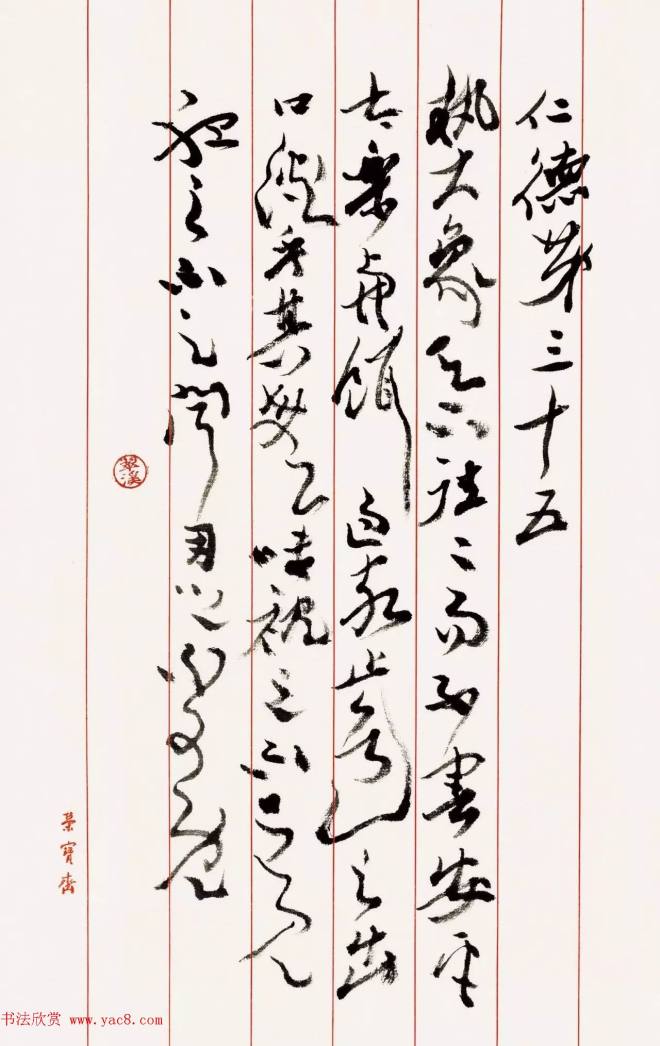 仁德第三十五
執大象天下往〻而不害安平
太樂與餌過客止道之出
口淡乎其無味視之不足見
聽之不足聞用之不可既
翠溪
榮寶齋
书法欣赏 www.yac8.com